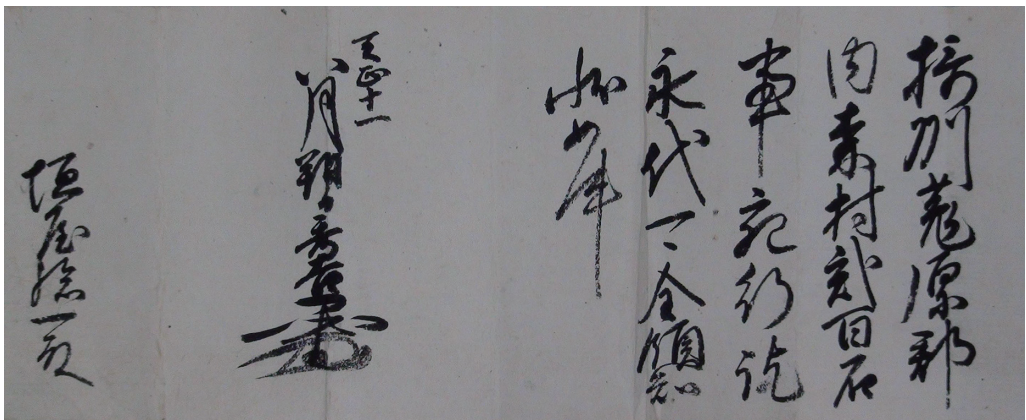 摂州菟原郡
内森村弐百石
事宛行訖
永代可全領知
状如件
天正十一
八月朔日 秀吉
垣屋一殿